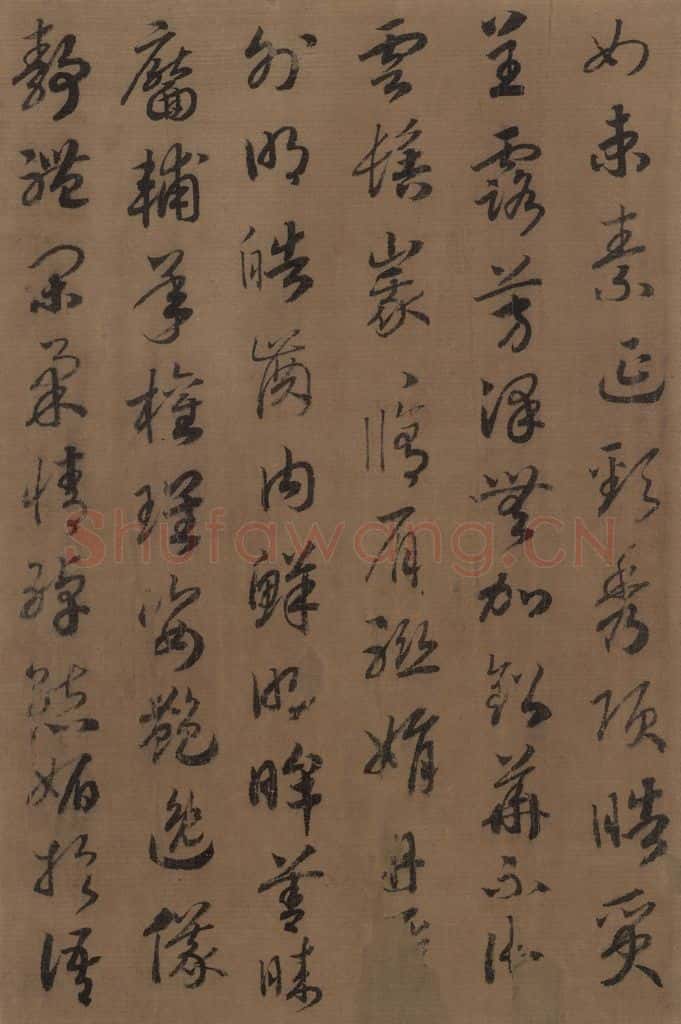 如束素延頸秀項皓質
呈露芳澤無加鉛華不御
雲髻峩々脩眉聯娟丹唇
外朗皓齒内鮮明眸善睞
靨輔承權瓌姿艷逸儀
靜體閑柔情綽態媚於語
Shufawang.CN